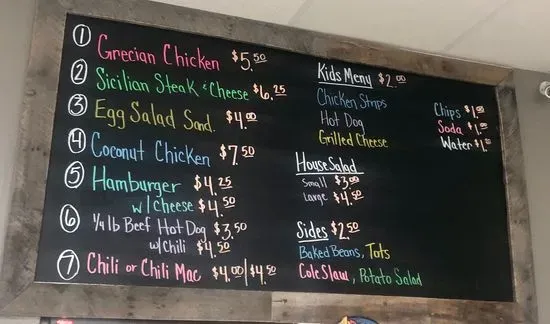 1 Grecian Chicken $5.50
2 Sicilian Steak & Cheese $6.25
3 Egg Salad Sand. $4.00
4 Coconut Chicken $7.50
5 Hamburger $4.25
w/Cheese $4.50
6 1/4 lb Beef Hot Dog $3.50
w/chili $4.50
7 Chili or Chili Mac $4.00/$4.50
Kids Meny $2.00
Chicken Strips
Hot Dog
Grilled Cheese
House Salad
Small $3.00
Large $4.50
Sides $2.50
Baked Beans, Tots
Cole Slaw, Potato Salad
Chips $1.00
Soda $1.00
Water $1.00